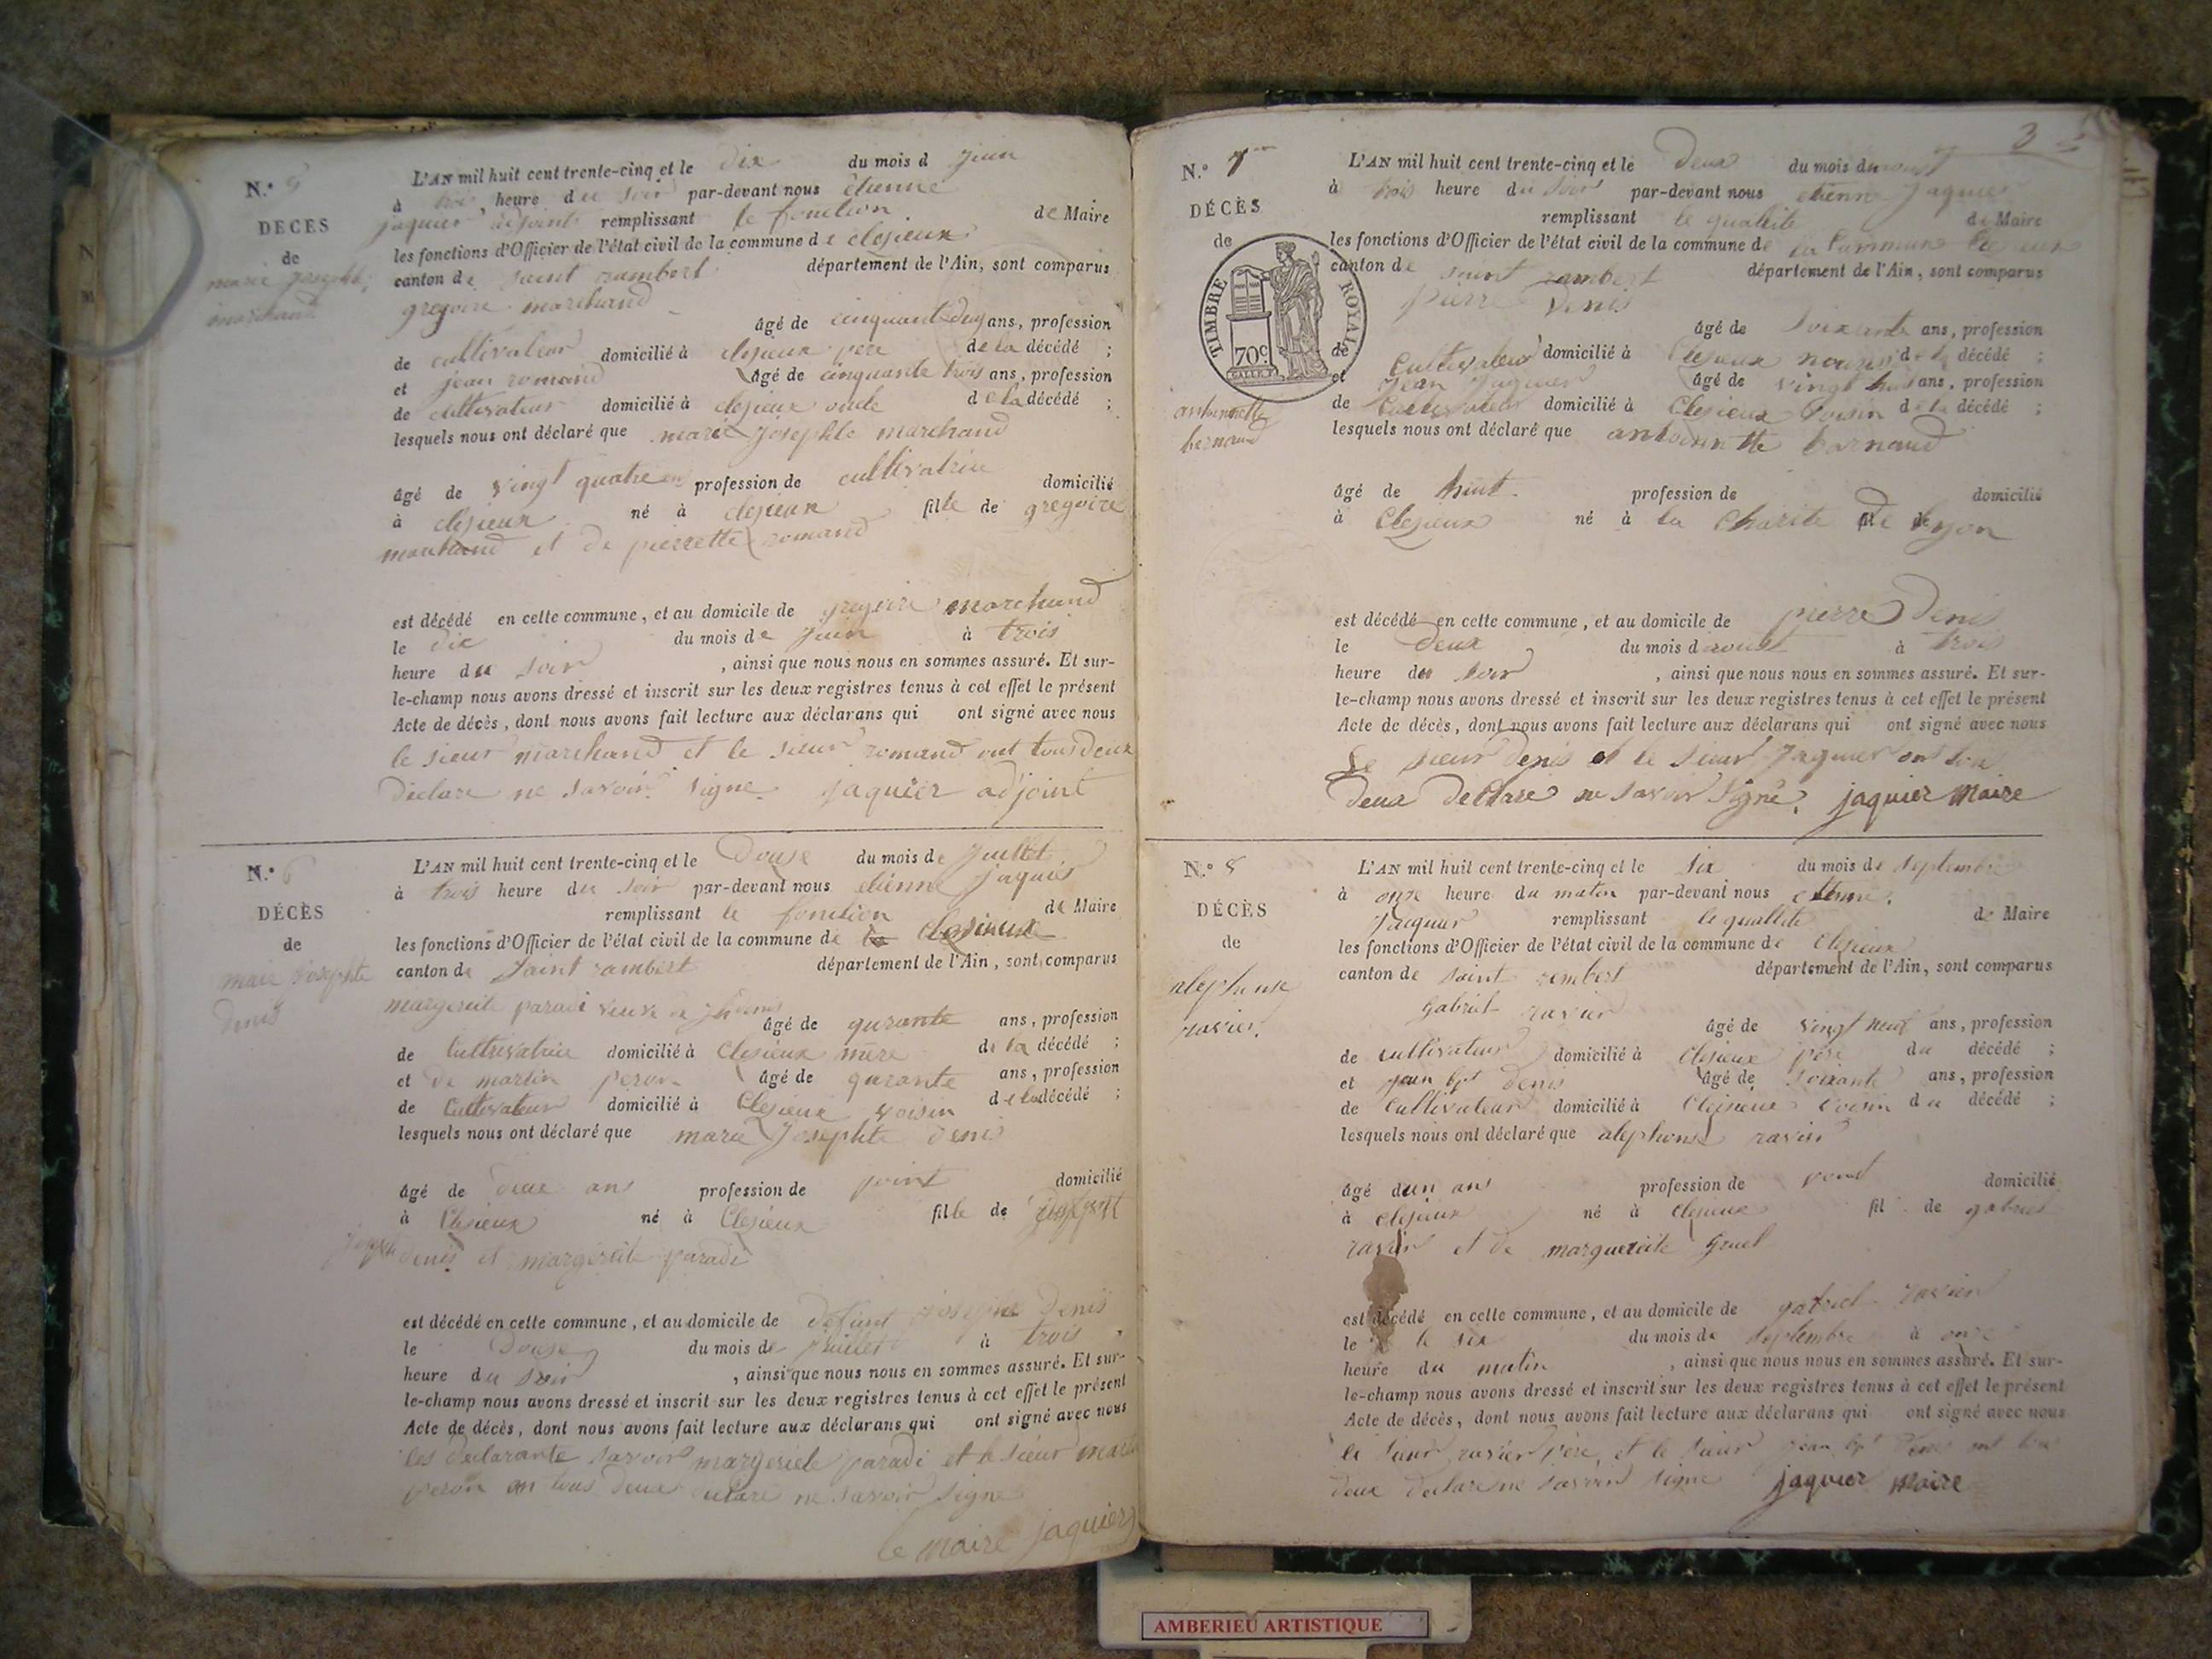 N.° 5
DÉCÈS
de
marie Josephte
marchand
L'AN mil huit cent trente-cinq et le dix du mois d Juin
à trois heure du soir par-devant nous étienne
jaquier adjoint remplissant le fonction de Maire
les fonctions d'Officier de l'état civil de la commune de clesieux
canton de saint rambert département de l'Ain, sont comparus
gregoire marchand
âgé de cinquante deux ans, profession
de cultivateur domicilié à clesieux pere de la décédé ;
et jean romand âgé de cinquante trois ans, profession
de cultivateur domicilié à clesieux oncle de la décédé ;
lesquels nous ont déclaré que marie Josephte marchand
âgé de vingt quatre ans profession de cultivatrice domicilié
à clesieux né à clesieux fille de gregoire
marchand et de pierrette romand
est décédé en cette commune, et au domicile de gregoire marchand
le dix du mois de Juin à trois
heure du soir , ainsi que nous nous en sommes assuré. Et sur-
le-champ nous avons dressé et inscrit sur les deux registres tenus à cet effet le présent
Acte de décès, dont nous avons fait lecture aux déclarans qui ont signé avec nous
le sieur marchand et le sieur romand ont tous deux
declare ne savoir signe jaquier adjoint
N.° 6
DÉCÈS
de
marie Josephte
denis
L'AN mil huit cent trente-cinq et le Douse du mois de Juillet
à trois heure du soir par-devant nous etienne Jaquier
remplissant le fonction de Maire
les fonctions d'Officier de l'état civil de la commune de la Clesieux
canton de Saint rambert département de l'Ain, sont comparus
margerite paradi veuve de denis
âgé de qurante ans, profession
de Cultivatrice domicilié à Clesieux mere de la décédé ;
et de martin peron âgé de qurante ans, profession
de Cultivateur domicilié à Clesieux voisin de la décédé ;
lesquels nous ont déclaré que marie Josephte denis
âgé de deux ans profession de point domicilié
à Clesieux né à Clesieux fille de
joseph denis et margerite paradi
est décédé en cette commune, et au domicile de defunt josephe Denis
le Douse du mois de Juillet à trois
heure du soir , ainsi que nous nous en sommes assuré. Et sur-
le-champ nous avons dressé et inscrit sur les deux registres tenus à cet effet le présent
Acte de décès, dont nous avons fait lecture aux déclarans qui ont signé avec nous
les declarante savoir margeriete paradi et le sieur martin
peron on tous deux declare ne savoir signe
le maire jaquier
3
N.° 7
DÉCÈS
de
TIMBRE ROYAL
70c
antoinette
bernand
L'AN mil huit cent trente-cinq et le Deux du mois daoust
à trois heure du soir par-devant nous etienne Jaquier
remplissant le quallite de Maire
les fonctions d'Officier de l'état civil de la commune de la Commune Clesieux
canton de saint rambert département de l'Ain, sont comparus
pierre Denis
âgé de soixante ans, profession
de Cultivateur domicilié à Clesieux de la décédé ;
et Jean Jaquier âgé de vingt huit ans, profession
de Cultivateur domicilié à Clesieux voisin de la décédé ;
lesquels nous ont déclaré que antoinette bernand
âgé de profession de domicilié
à Clesieux né à la Charite de lyon
est décédé en cette commune, et au domicile de pierre Denis
le Deux du mois daoust à trois
heure du soir , ainsi que nous nous en sommes assuré. Et sur-
le-champ nous avons dressé et inscrit sur les deux registres tenus à cet effet le présent
Acte de décès, dont nous avons fait lecture aux déclarans qui ont signé avec nous
Le sieur denis et le sieur Jaquier ont tou
deux declare ne savoir signé. jaquier maire
N.° 8
DÉCÈS
de
alephonse
ravier
L'AN mil huit cent trente-cinq et le six du mois de septembre
à onze heure du matin par-devant nous etienne
Jacquier remplissant le quallite de Maire
les fonctions d'Officier de l'état civil de la commune de Clesieux
canton de saint rembert département de l'Ain, sont comparus
gabriel ravier
âgé de vingt neuf ans, profession
de cultivateur domicilié à Clesieux père du décédé ;
et jean bpt denis âgé de soixante ans, profession
de Cultivateur domicilié à Clesieux voisin du décédé ;
lesquels nous ont déclaré que alephonse ravier
âgé dun ans profession de point domicilié
à clesieux né à clesieux fil de gabriel
ravier et de marguereite gruel
est décédé en cette commune, et au domicile de gabriel ravier
le le six du mois de septembre à onze
heure du matin , ainsi que nous nous en sommes assuré. Et sur-
le-champ nous avons dressé et inscrit sur les deux registres tenus à cet effet le présent
Acte de décès, dont nous avons fait lecture aux déclarans qui ont signé avec nous
le sieur ravier père, et le sieur jean bpt denis ont tous
deux declare ne savoir signe jaquier maire
AMBERIEU ARTISTIQUE